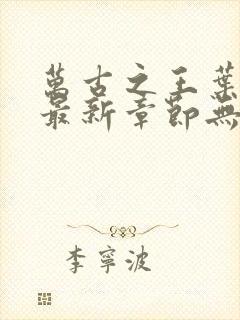 萬古之王葉
最新章節無
李寧波